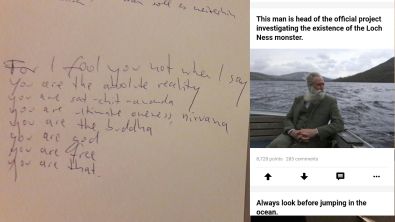 For I fool you not when I say
you are the absolute reality
you are sat-chit-ananda
you are ultimate oneness, nirvana
you are the buddha
you are god
you are free
you are that.
This man is head of the official project
investigating the existence of the Loch
Ness monster.
8,729 points 285 comments
Always look before jumping in the
ocean.